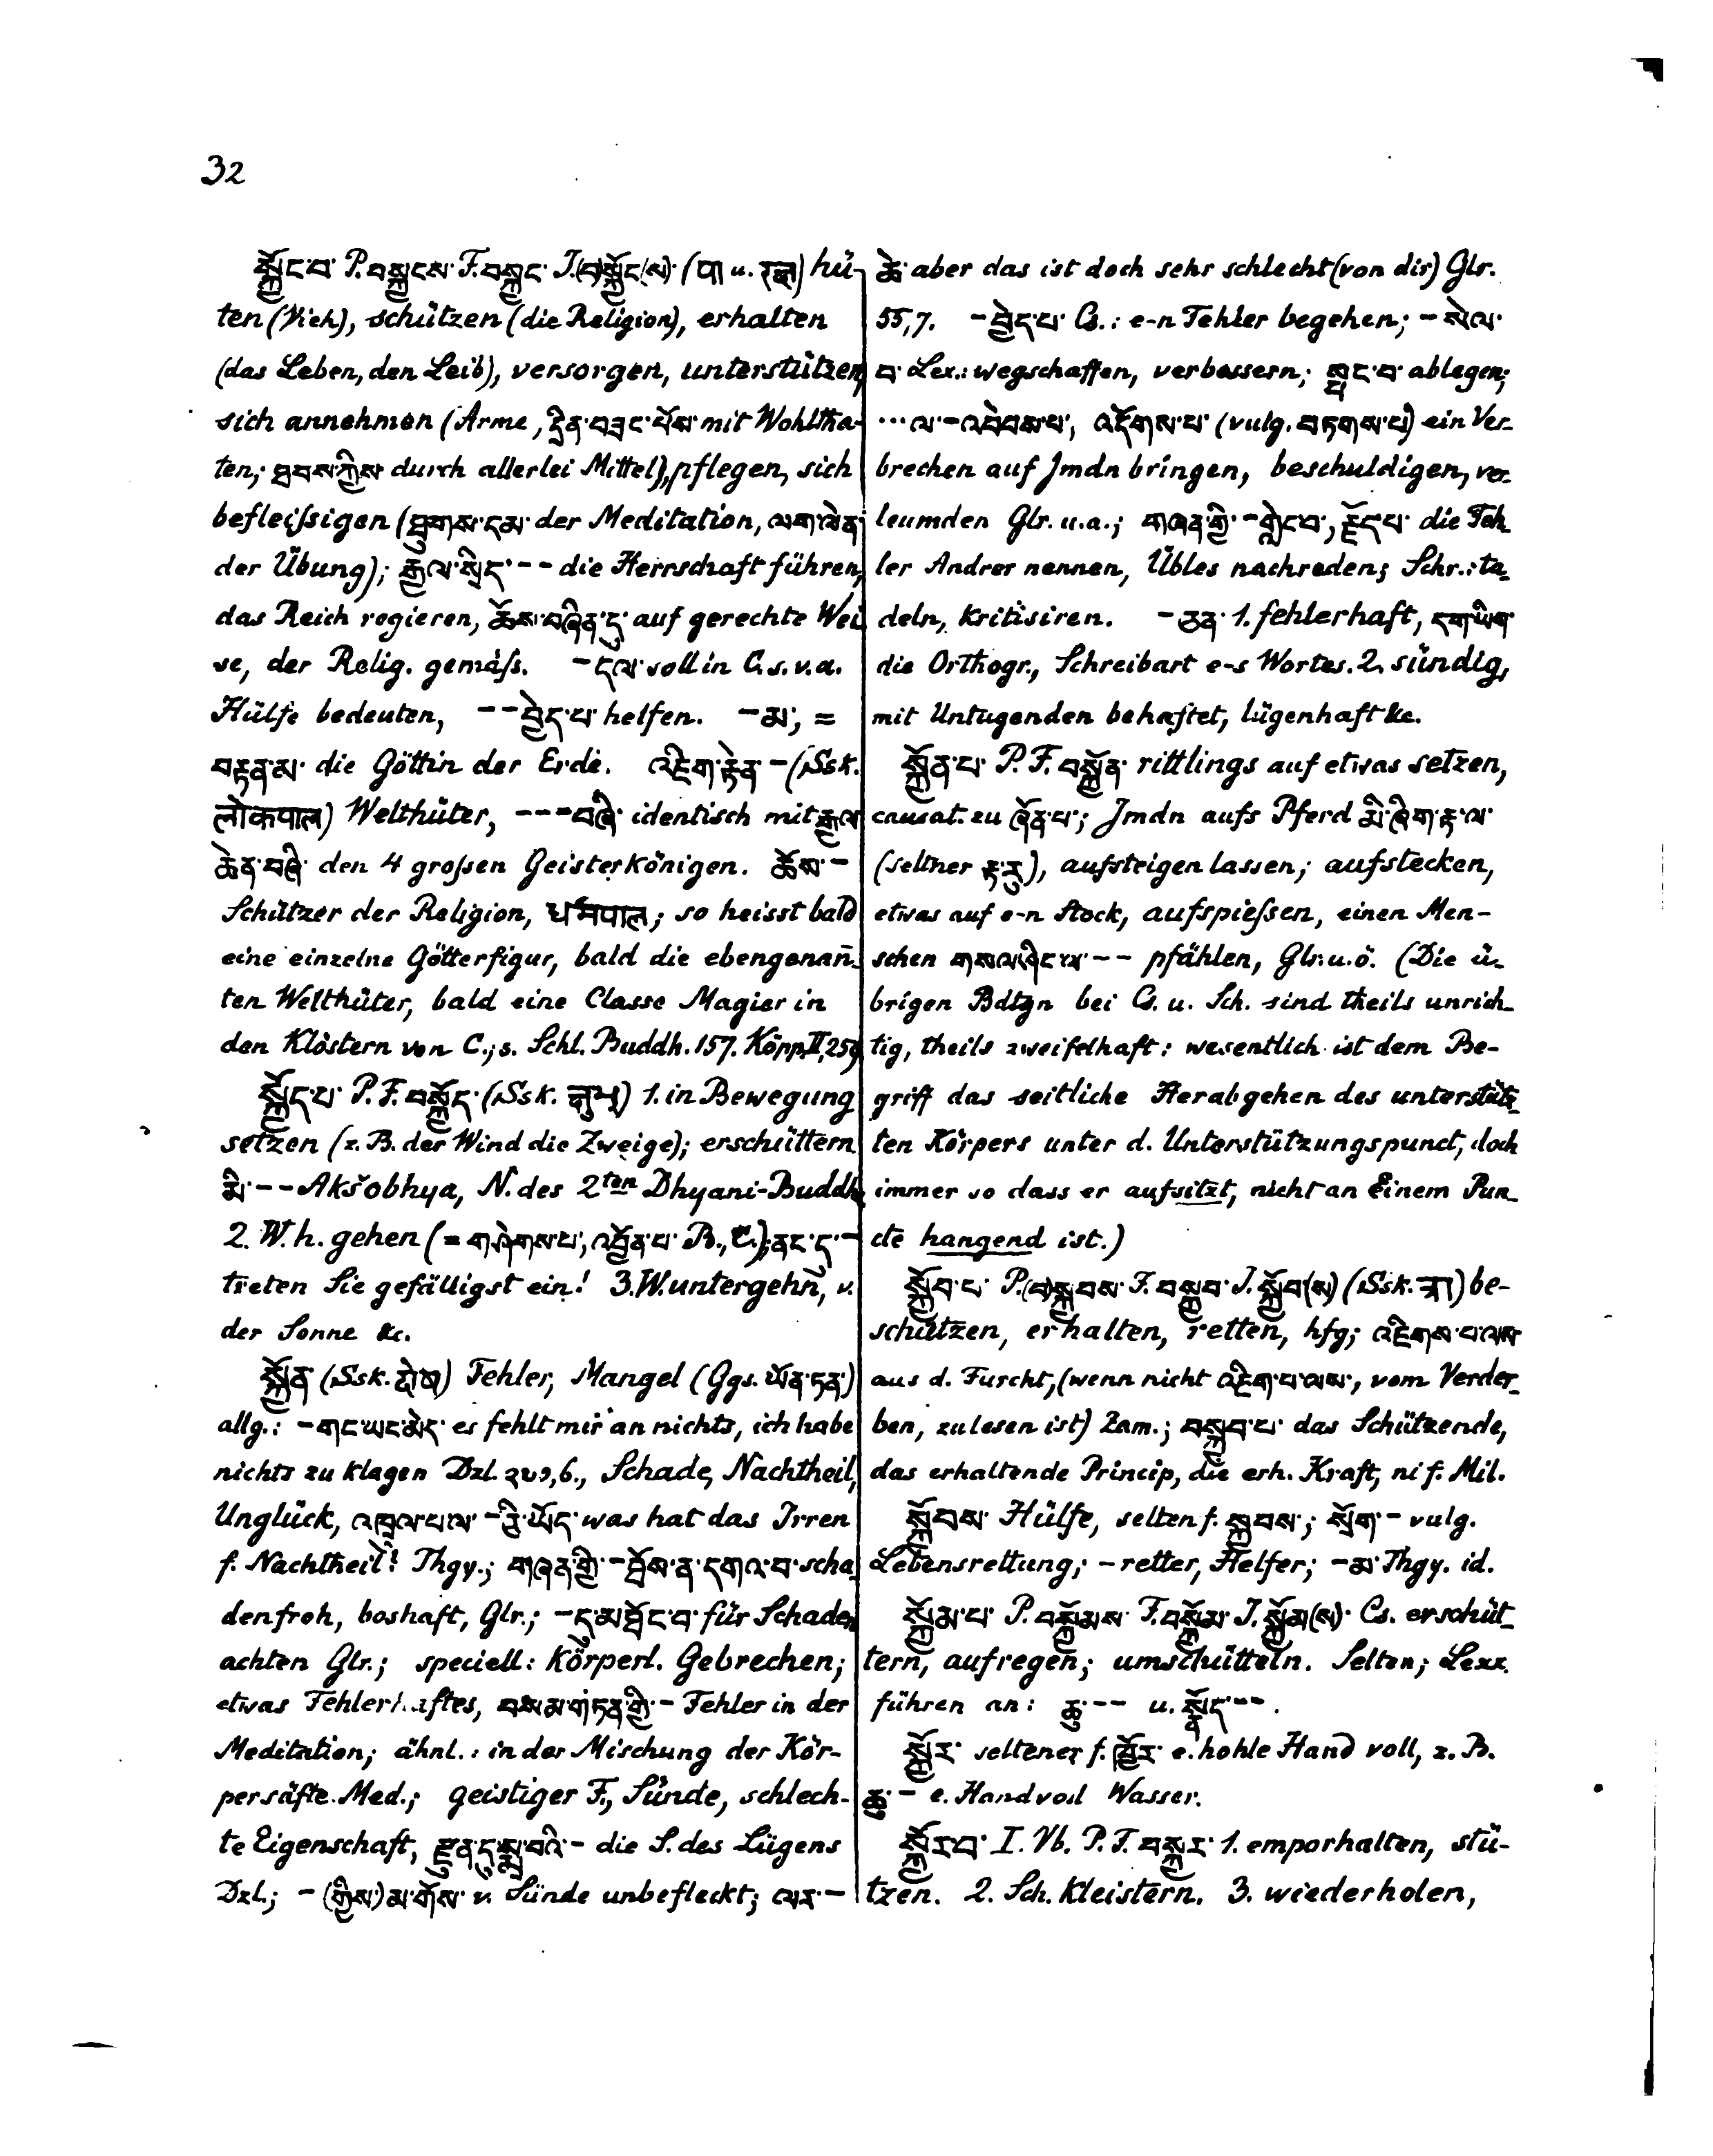 32
སྐྱོང་བ་ P. བསྐྱངས་ F. བསྐྱང་ I. (བ)སྐྱོང(ས)་ (पा u. रक्ष) hü-
ten (Vieh), schützen (die Religion), erhalten
(das Leben, den Leib), versorgen, unterstützen,
sich annehmen (Arme, དྲིན་བཟང་པོས་ mit Wohltha-
ten; ཐབས་ཀྱིས་ durch allerlei Mittel), pflegen, sich
befleißigen (ཐུགས་དམ་ der Meditation, ལག་ལེན་
der Übung); རྒྱལ་སྲིད་ -- die Herrschaft führen,
das Reich regieren, ཆོས་བཞིན་དུ་ auf gerechte Wei-
se, der Relig. gemäß. - དལ་ soll in C. s. v. a.
Hülfe bedeuten, -- བྱེད་པ་ helfen. - མ་, =
བརྟན་མ་ die Göttin der Erde. འཇིག་རྟེན་ - (Ssk.
लोकपाल) Welthüter, --- བཞི་ identisch mit རྒྱལ་
ཆེན་བཞི་ den 4 großen Geisterkönigen. ཆོས་ -
Schützer der Religion, धर्मपाल; so heisst bald
eine einzelne Götterfigur, bald die ebengenan̄-
ten Welthüter, bald eine Classe Magier in
den Klöstern von C.; s. Schl. Buddh. 157. Köpp. II, 259.
སྐྱོད་པ་ P. F. བསྐྱོད་ (Ssk. क्षुभ्) 1. in Bewegung
setzen (z. B. der Wind die Zweige); erschüttern.
མི་ -- Akšobhya, N. des 2ten Dhyani-Buddh.
2. W. h. gehen (= གཤེགས་པ་, འབྱོན་པ་ B., C.); ནང་དུ་ -
treten Sie gefälligst ein! 3. W. untergehn, v.
der Sonne &c.
སྐྱོན་ (Ssk. दोष) Fehler, Mangel (Ggs. ཡོན་ཏན་)
allg.: - གང་ཡང་མེད་ es fehlt mir an nichts, ich habe
nichts zu klagen Dzl. ༢༠༡, 6., Schade, Nachtheil,
Unglück, འཁྲུལ་པ་ལ་ - ཅི་ཡོད་ was hat das Irren
f. Nachtheil? Thgy.; གཞན་གྱི་ - བྱོས་ན་དགའ་བ་ scha-
denfroh, boshaft, Glr.; - དུ་མཐོང་བ་ für Schaden
achten Glr.; speciell: körperl. Gebrechen;
etwas Fehlerhaftes, བསམ་གཏན་གྱི་ - Fehler in der
Meditation; ähnl.: in der Mischung der Kör-
persäfte Med.; geistiger F., Sünde, schlech-
te Eigenschaft, རྫུན་དུ་སྨྲ་བའི་ - die S. des Lügens
Dzl.; - (གྱིས་) མ་གོས་ v. Sünde unbefleckt; ལར་ -
ཆེ་ aber das ist doch sehr schlecht (von dir) Glr.
55, 7. - བྱེད་པ་ Cs.: e-n Fehler begehen; - སེལ་
བ་ Lex.: wegschaffen, verbessern; སྤང་བ་ ablegen;
... ལ་ - འབེབས་པ་, འདོགས་པ་ (vulg. བཏགས་པ་) ein Ver-
brechen auf Jmdn bringen, beschuldigen, ver-
leumden Glr. u. a.; གཞན་གྱི་ - གླེང་བ་, རྗོད་པ་ die Feh-
ler Andrer nennen, Übles nachreden; Schr.: ta-
deln, kritisiren. - ཅན་ 1. fehlerhaft, དག་ཡིག་
die Orthogr., Schreibart e-s Wortes. 2. sündig,
mit Untugenden behaftet, lügenhaft &c.
སྐྱོན་པ་ P. F. བསྐྱོན་ rittlings auf etwas setzen,
causat. zu ཞོན་པ་; Jmdn aufs Pferd མི་ཞིག་རྟ་ལ་
(seltner རྟ་རུ་), aufsteigen lassen; aufstecken,
etwas auf e-n Stock, aufspießen, einen Men-
schen གསལ་ཤིང་ལ་ -- pfählen, Glr. u. ö. (Die ü-
brigen Bdtgn bei Cs. u. Sch. sind theils unrich-
tig, theils zweifelhaft: wesentlich ist dem Be-
griff das seitliche Herabgehen des unterstütz-
ten Körpers unter d. Unterstützungspunct, doch
immer so dass er aufsitzt, nicht an Einem Pun-
cte hangend ist.)
སྐྱོབ་པ་ P. (བ)སྐྱབས་ F. བསྐྱབ་ I. སྐྱོབ(ས) (Ssk. त्रा) be-
schützen, erhalten, retten, hfg; འཇིགས་པ་ལས་
aus d. Furcht, (wenn nicht འཇིག་པ་ལས་, vom Verder-
ben, zu lesen ist) Zam.; བསྐྱབ་པ་ das Schützende,
das erhaltende Princip, die erh. Kraft, ni f. Mil.
སྐྱོབས་ Hülfe, selten f. སྐྱབས་; སྲོག་ - vulg.
Lebensrettung; - retter, Helfer; - མ་ Thgy. id.
སྐྱོམ་པ་ P. བསྐྱོམས་ F. བསྐྱོམ་ I. སྐྱོམ(ས)་ Cs. erschüt-
tern, aufregen; umschütteln. Selten; Lexx.
führen an: ཆུ་ -- u. སྣོད་ --.
སྐྱོར་ seltener f. ཁྱོར་ e. hohle Hand voll, z. B.
ཆུ་ - e. Handvoll Wasser.
སྐྱོར་བ་ I. Vb. P. F. བསྐྱར་ 1. emporhalten, stü-
tzen. 2. Sch. kleistern. 3. wiederholen,